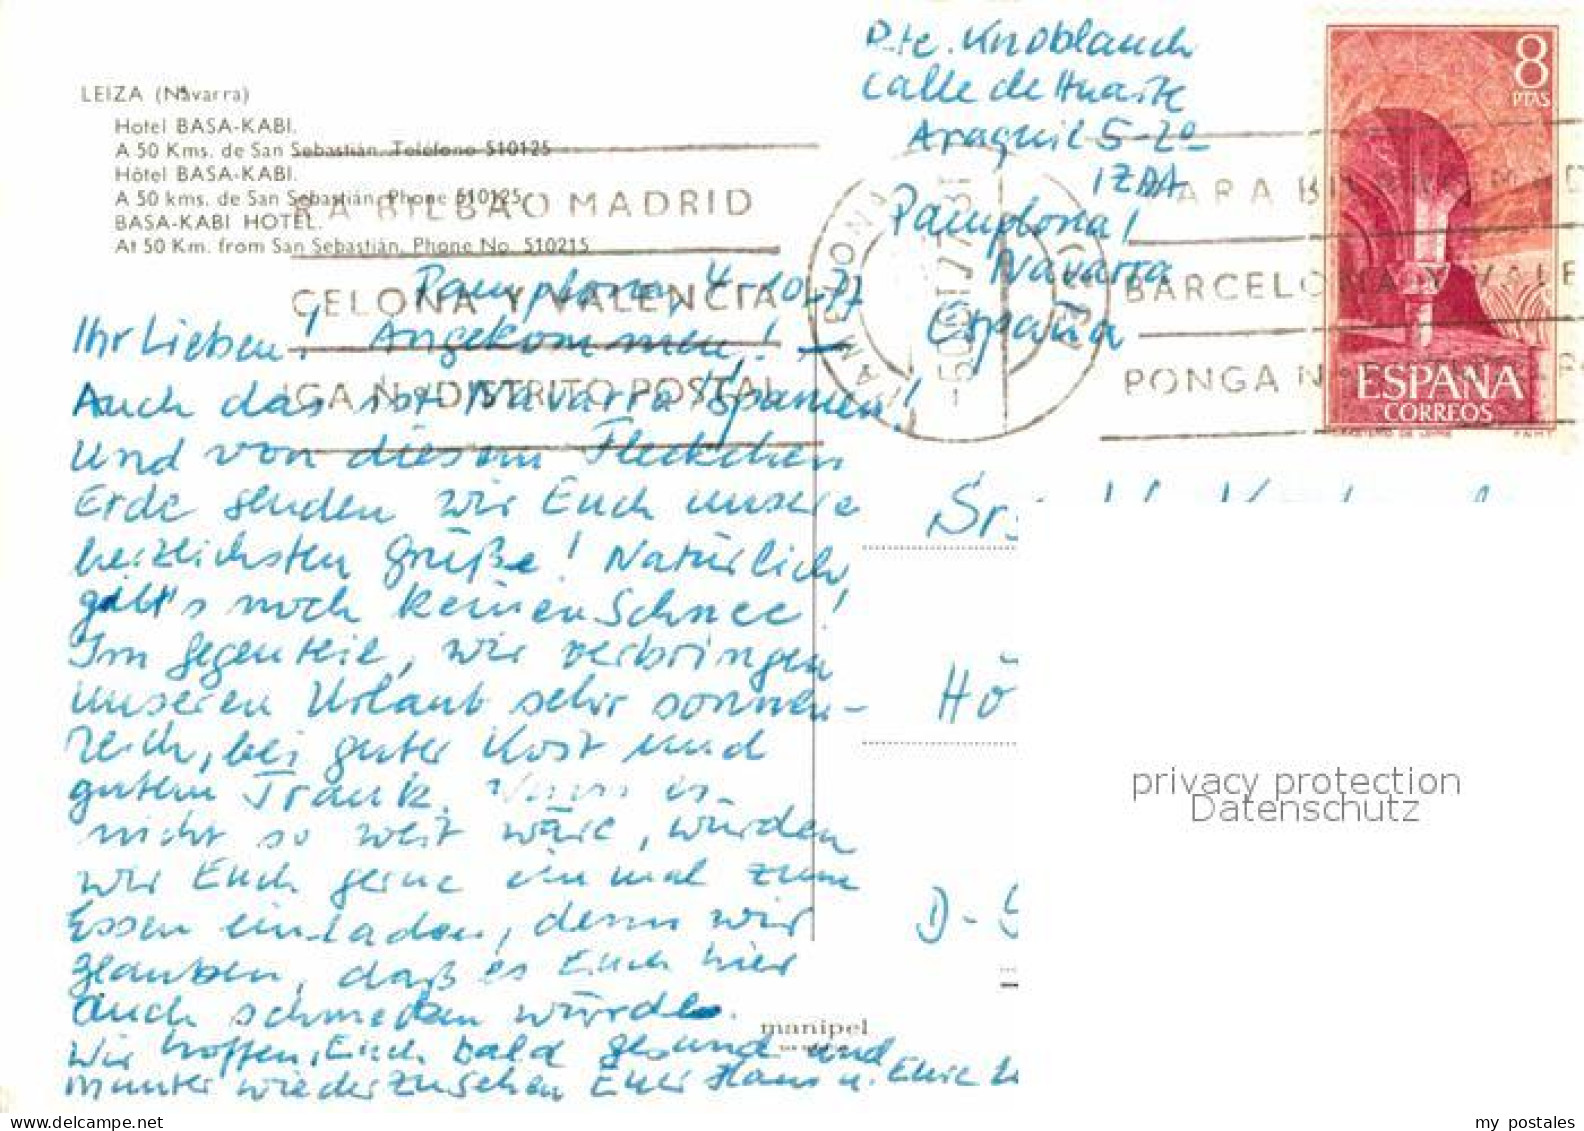 LEIZA (Navarra)
Hotel BASA-KABI.
A 50 Kms. de San Sebastián. Teléfono 510125
Hôtel BASA-KABI.
A 50 kms. de San Sebastián. Phone 510125
BASA-KABI HOTEL.
At 50 Km. from San Sebastián. Phone No. 510215
Rte. Knoblauch
Calle de Huarte
Araquil 5-2º
IZDA
Pamplona!
Navarra
España
8
PTAS
ESPAÑA
CORREOS
F.N.M.T.
BILBAO MADRID
CELONA Y VALENCIA
NGA Nº DISTRITO POSTAL
PARA BILBAO MAD
BARCELONA Y VALE
PONGA Nº
Pamplona, 4-10-77
Ihr Lieben! Angekommen! –
Auch das ist Navarra Spanien!
Und von diesem Fleckchen
Erde senden wir Euch unsere
herzlichsten Grüße! Natürlich
gibt's noch keinen Schnee!
Im Gegenteil, wir verbringen
unseren Urlaub sehr sonnen-
reich, bei guter Kost und
gutem Trank. Wenn es
nicht so weit wäre, würden
wir Euch gerne einmal zum
Essen einladen, denn wir
glauben, daß es Euch hier
auch schmecken würde.
Wir hoffen, Euch bald gesund und
munter wiederzusehen Euer Hans u. Eure
Sr.
Hö
D-
manipel
privacy protection
Datenschutz
my postales